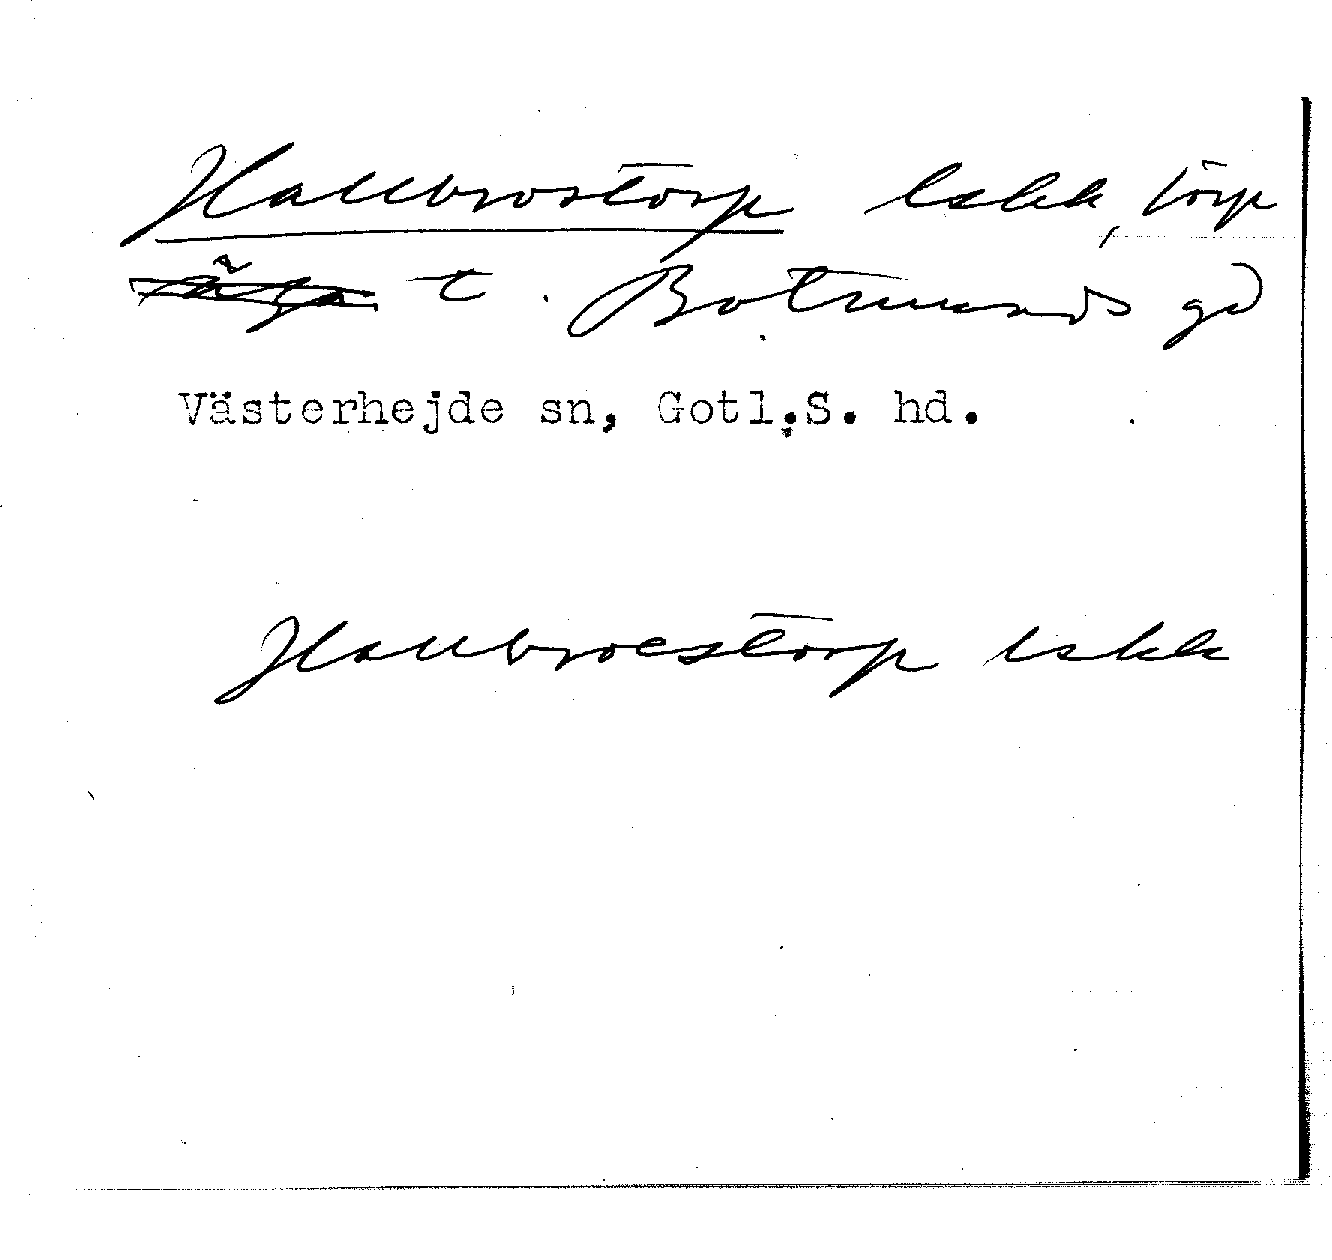 Hallbrostorp lskk, torp
t. Botmunds gd
Västerhejde sn, Gotl.S. hd.
Hallbroestorp lskk